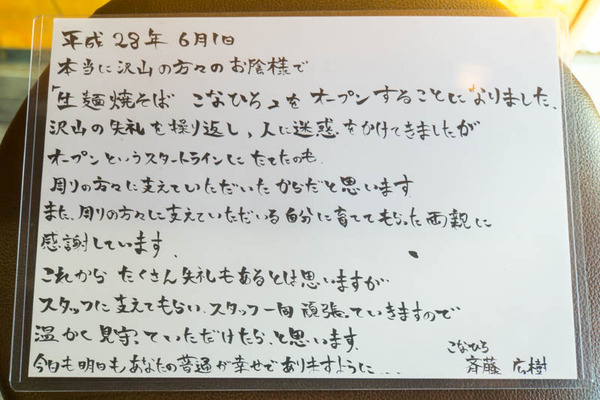 平成28年6月1日
本当に沢山の方々のお陰様で
「生麺焼そば こなひろ」をオープンすることになりました、
沢山の失礼を繰り返し、人に迷惑をかけてきましたが
オープンというスタートラインにたてたのも、
周りの方々に支えていただいたからだと思います
また、周りの方々に支えていただいる自分に育ててもらった両親に
感謝しています、
これから たくさん失礼もあるとは思いますが
スタッフに支えてもらい、スタッフ一同 頑張っていきますので
温かく見守っていただけたら、と思います、
今日も明日も、あなたの普通が幸せでありますように…
こなひろ
斉藤 広樹